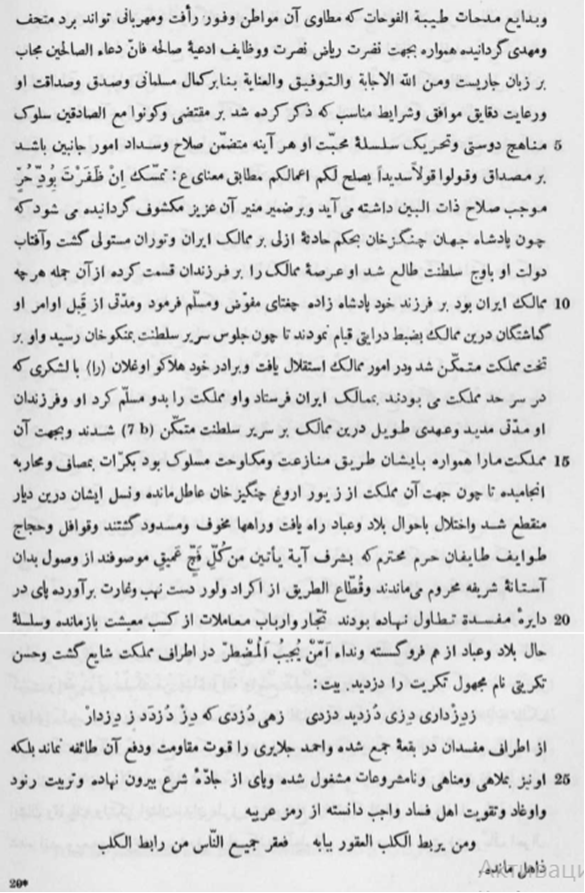 وبدایع مدحات طیبة الفوحات که مطاوی آن مواطن وفور رأفت ومهربانی تواند برد متحف
ومهدی گردانیده همواره بجهت نضرت ریاض نصرت ووظایف ادعیهٔ صالحه فانّ دعاء الصالحین مجاب
بر زبان جاریست ومن الله الاجابة والتوفیق والعنایة بنابر کمال مسلمانی وصدق وصداقت او
ورعایت دقایق موافق وشرایط مناسب که ذکر کرده شد بر مقتضی وکونوا مع الصادقین سلوک
5 مناهج دوستی وتحریک سلسلهٔ محبّت او هر آینه متضمّن صلاح وسداد امور جانبین باشد
بر مصداق وقولوا قولاً سدیداً یصلح لکم اعمالکم مطابق معنای ع: تمسّک اِنْ ظَفَرْتَ بِوِدّ حُرّ
موجب صلاح ذات البین داشته می آید وبر ضمیر منیر آن عزیز مکشوف گردانیده می شود که
چون پادشاه جهان چنگیزخان بحکم حادثهٔ ازلی بر ممالک ایران وتوران مستولی گشت وآفتاب
دولت او باوج سلطنت طالع شد او عرصهٔ ممالک را بر فرزندان قسمت کرده از آن جمله هر چه
10 ممالک ایران بود بر فرزند خود پادشاه زاده چغتای مفوّض ومسلّم فرمود ومدّتی از قِبل اوامر او
گماشتگان درین ممالک بضبط درایتی قیام نمودند تا چون جلوس سریر سلطنت بمنکوخان رسید واو بر
تخت مملکت متمکّن شد ودر امور ممالک استقلال یافت وبرادر خود هلاکو اوغلان (را) با لشکری که
در سر حد مملکت می بودند بممالک ایران فرستاد واو مملکت را بدو مسلّم کرد او وفرزندان
او مدّتی مدید وعهدی طویل درین ممالک بر سریر سلطنت متمکّن (7 b) شدند وبجهت آن
15 مملکت مارا همواره بایشان طریق منازعت ومکاوحت مسلوک بود بکرّات بمصافی ومحاربه
انجامیده تا چون جهت آن مملکت از زیور اروغ چنگیزخان عاطل مانده ونسل ایشان درین دیار
منقطع شد واختلال باحوال بلاد وعباد راه یافت وراهها مخوف ومسدود گشتند وقوافل وحجاج
طوایف طایفان حرم محترم که بشرف آیة یأتین من کُلّ فَجّ عَمیقٍ موصوفند از وصول بدان
آستانهٔ شریفه محروم می‌ماندند وقُطّاع الطریق از اکراد ولور دست نهب وغارت برآورده پای در
20 دایرهٔ مفسدة تطاول نهاده بودند تجّار وارباب معاملات از کسب معیشت بازمانده وسلسلهٔ
حال بلاد وعباد از هم فرو گسسته ونداء اَمَّنْ یُجیبُ اَلْمُضْطَرّ در اطراف مملکت شایع گشت وحسن
تکریتی نام مجهول تکریت را دزدید. بیت:
زدِزداری دِزی دُزدید دزدی زهی دُزدی که دِزْ دُزدَد زِ دِزدار
از اطراف مفسدان در بقعهٔ جمع شده واحمد جلایری را قوت مقاومت ودفع آن طائفه نماند بلکه
25 اونیز بملاهی ومناهی ونامشروعات مشغول شده وپای از جادّهٔ شرع بیرون نهاده وتربیت رنود
واوغاد وتقویت اهل فساد واجب دانسته از رمز عربیه
ومن یربط الکلب العقور ببابه فعقر جمیع النّاس من رابط الکلب
ذاهل مانده.
20*
Активаци